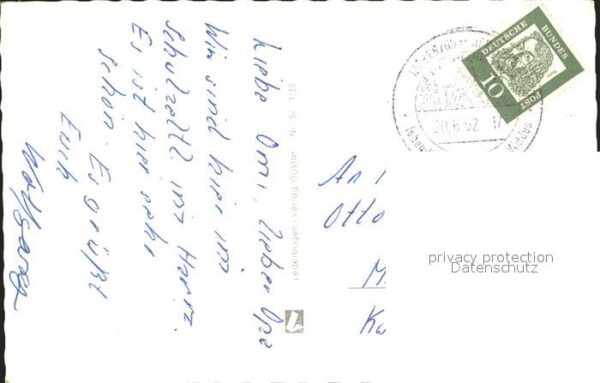 Liebe Omi, lieber Opa
Wir sind hier im
Schulzeltl im Harz.
Es ist hier sehr
schön. Es grüßt
Euch
Wolfgang
Lederbogen-Verlag Goslar Nr. Sr 133
DEUTSCHE BUNDES
POST
10
20.6.62
An
Otto
M
Ka
privacy protection
Datenschutz